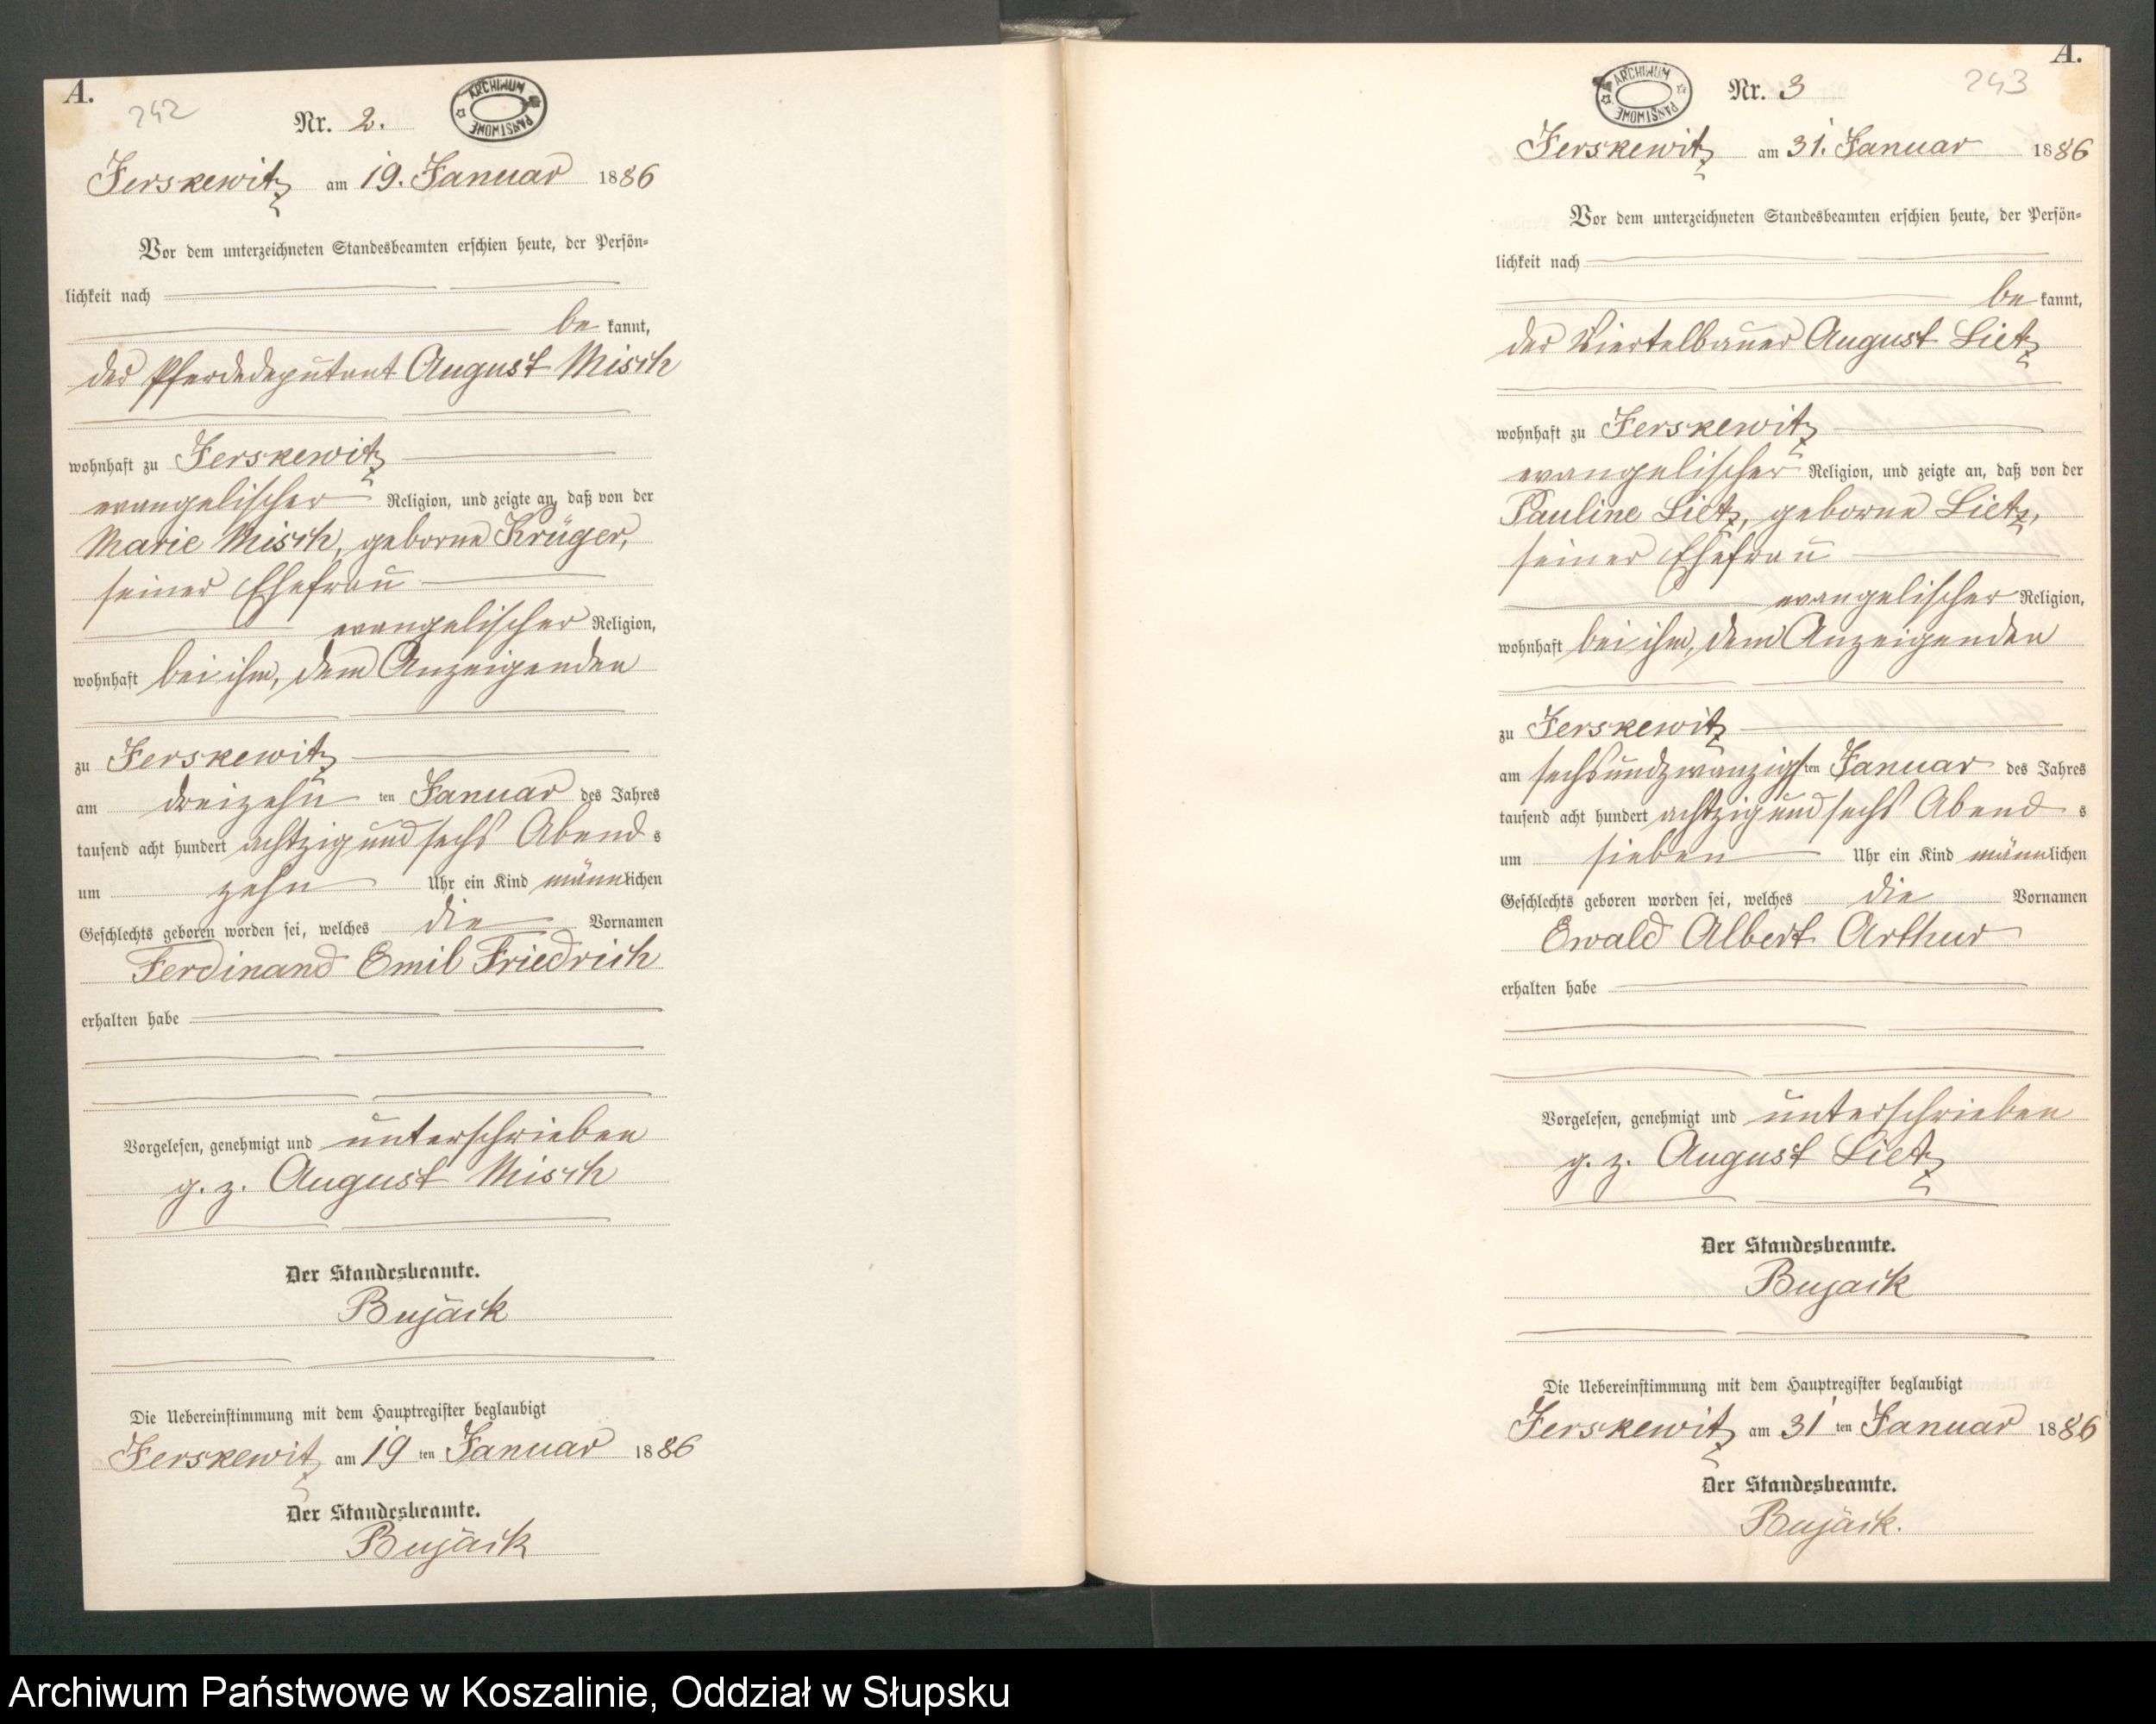 A.
242
Nr. 2.
ARCHIWUM PAŃSTWOWE
Jerskewitz am 19. Januar 1886
Vor dem unterzeichneten Standesbeamten erschien heute, der Persön-
lichkeit nach
be kannt,
der Pferdedeputant August Misch
wohnhaft zu Jerskewitz
evangelischer Religion, und zeigte an, daß von der
Marie Misch, geborne Krüger,
seiner Ehefrau
evangelischer Religion,
wohnhaft bei ihm, dem Anzeigenden
zu Jerskewitz
am dreizehn ten Januar des Jahres
tausend acht hundert achtzig und sechs Abend s
um zehn Uhr ein Kind männlichen
Geschlechts geboren worden sei, welches die Vornamen
Ferdinand Emil Friedrich
erhalten habe
Vorgelesen, genehmigt und unterschrieben
g. z. August Misch
Der Standesbeamte.
Bujack
Die Uebereinstimmung mit dem Hauptregister beglaubigt
Jerskewitz am 19 ten Januar 1886
Der Standesbeamte.
Bujack
A.
243
Nr. 3
ARCHIWUM PAŃSTWOWE
Jerskewitz am 31. Januar 1886
Vor dem unterzeichneten Standesbeamten erschien heute, der Persön-
lichkeit nach
be kannt,
der Viertelbauer August Lietz
wohnhaft zu Jerskewitz
evangelischer Religion, und zeigte an, daß von der
Pauline Lietz, geborne Lietz,
seiner Ehefrau
evangelischer Religion,
wohnhaft bei ihm, dem Anzeigenden
zu Jerskewitz
am sechsundzwanzigsten Januar des Jahres
tausend acht hundert achtzig und sechs Abend s
um sieben Uhr ein Kind männlichen
Geschlechts geboren worden sei, welches die Vornamen
Ewald Albert Arthur
erhalten habe
Vorgelesen, genehmigt und unterschrieben
g. z. August Lietz
Der Standesbeamte.
Bujack
Die Uebereinstimmung mit dem Hauptregister beglaubigt
Jerskewitz am 31 ten Januar 1886
Der Standesbeamte.
Bujack.
Archiwum Państwowe w Koszalinie, Oddział w Słupsku